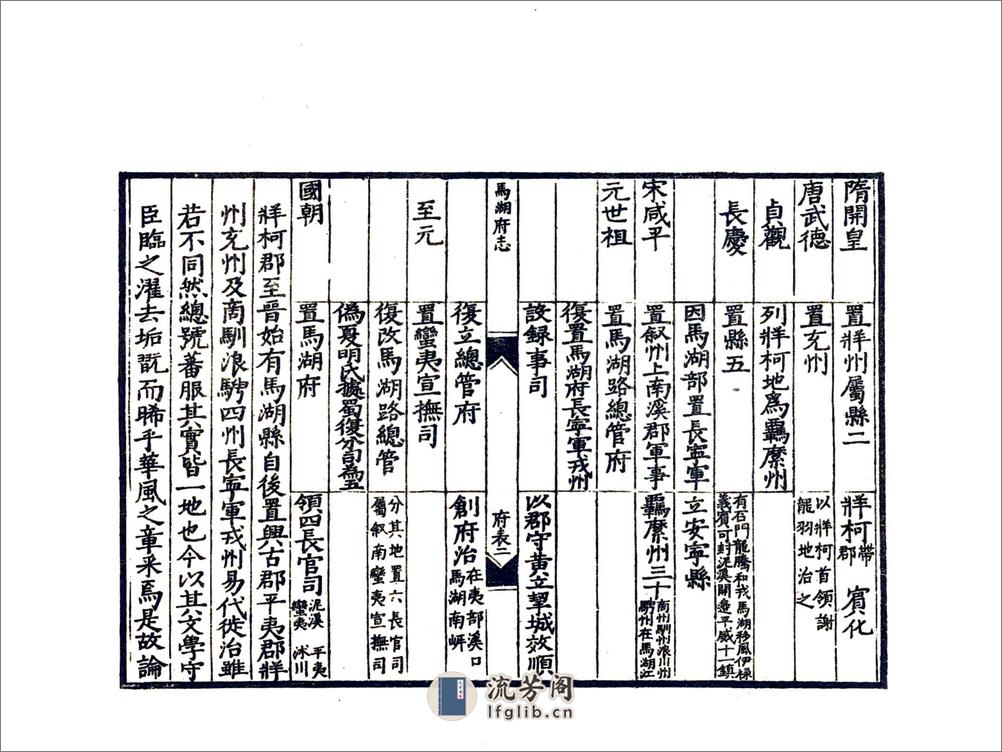 隋開皇 置牂州屬縣二 牂柯郡帶 賓化
唐武德 置充州 以牂柯首領謝龍羽地治之
貞觀 列牂柯地爲羈縻州
長慶 置縣五 有石門龍騰和戎馬湖移風伊祿義賓可封泥溪開邊平威十一鎮
因馬湖部置長寧軍 立安寧縣
宋咸平 置叙州上南溪郡軍事 羈縻州三十 南州馴州浪川州騁州在馬湖江
元世祖 置馬湖路總管府
復置馬湖府長寧軍戎州
設録事司 以郡守黃立挈城效順
馬湖府志 府表二
復立總管府 創府治 在夷部溪口馬湖南岸
至元 置蠻夷宣撫司
復改馬湖路總管 分其地置六長官司屬叙南蠻夷宣撫司
僞夏明氏據蜀復分司爲五
國朝 置馬湖府 領四長官司 泥溪 平夷 蠻夷 沐川
牂柯郡至晉始有馬湖縣自後置興古郡平夷郡牂
州充州及商馴浪騁四州長寧軍戎州易代徙治雖
若不同然總號蕃服其實皆一地也今以其文學守
臣臨之濯去垢翫而晞乎華風之章采焉是故論
流芳阁
lfglib.cn